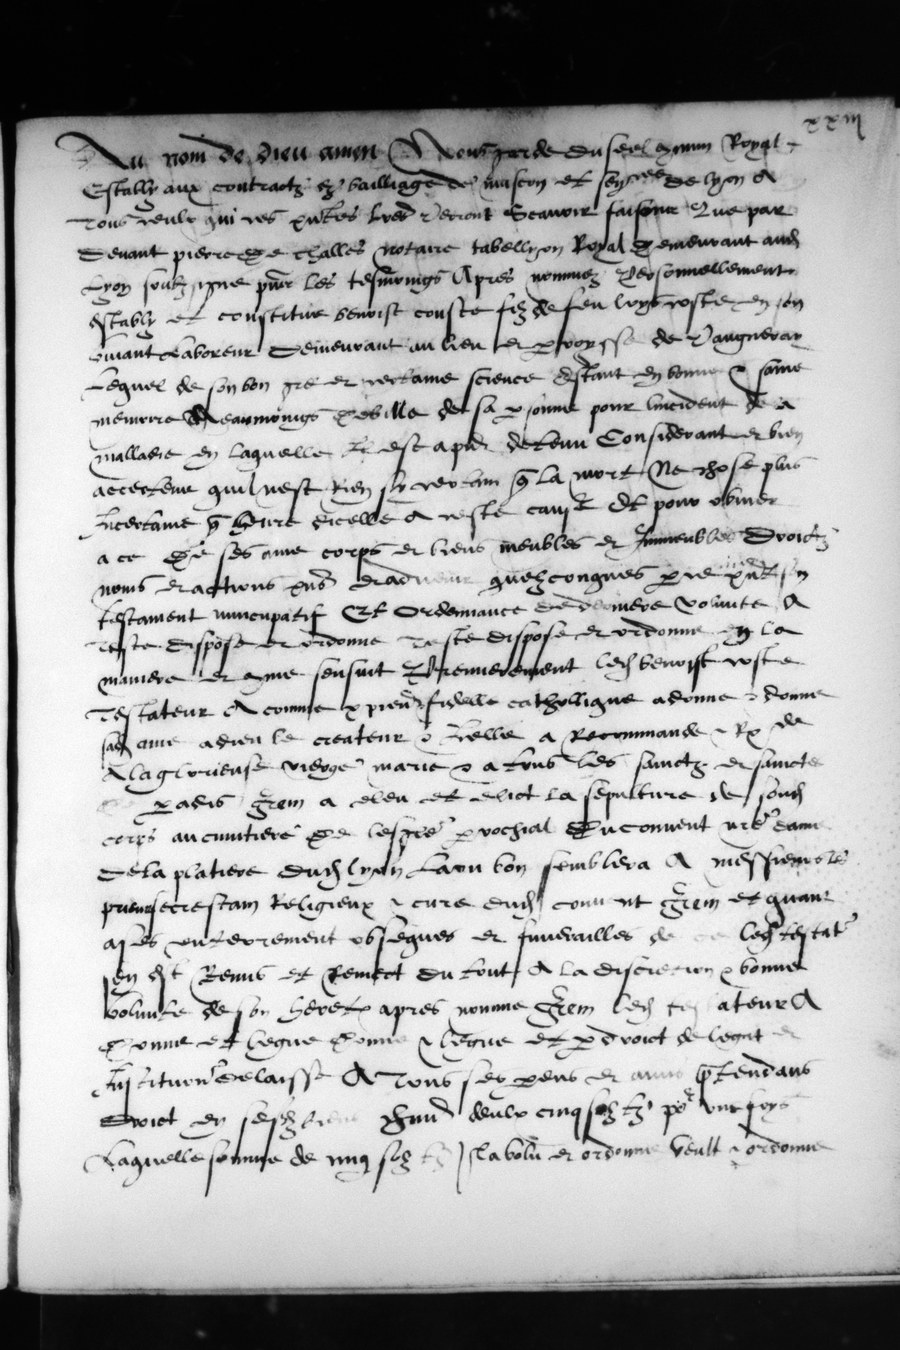 xxiij
Au nom de dieu amen Nous garde du seel commun Royal
Estably aux contractz ez bailliage de mascon et sen^cee de lyon A
Tous ceulx qui ces pntes lres verront Scavoir faisons Que par
devant pierre de challes notaire tabellyon Royal demeurant aud
Lyon soubzsigne pnr les tesmoings Apres nommez personnellement
estably et constitue benoist coste filz de feu loys coste en son
vivant laboreur demeurant au lieu et parroysse de Vaugneray
Lequel de son bon gre et certaine science estant en bonne & saine
memoire Neaumoings debille de sa psonne pour lincident de
malladie en laquelle il est a pnt detenu Considerant et bien
acertene quil nest Rien si certain q la mort Ne chose plus
Incertaine q lheure dicelle A ceste cause Et pour obvier
a ce de ses ame corps et biens meubles et Immeubles Droictz
noms et actions pns et advenir quelzcongues par ce pnt son
testament nuncupatif Et Ordonnance de derniere volunte A
Teste dispose et ordonne Teste dispose et ordonne en la
maniere et comme sensuit Premierement led benoist coste
Testateur A comme xpien & fidelle catholligue a donne & donne
sad ame a dieu le createur & Icelle a Recommande & Rx de
A la glorieuse vierge marie & a tous les sainctz et sainctes
paradis Item a eleu et elict la sepulture de sond
corps au cimitiere de lesglise parrochial Du convent nre dame
De la platiere dud lyon La ou bon semblera A messieurs les
prieur secrestain Religieux & cure dud convent Item et quant
a ses enterrement obseques et funerailles de ce led testateur
sen est Remis et Remect du tout A la discretion & bonne
volunte de son heretier apres nomme Item led testateur A
Donne et legue Donne & legue et par droict de legat et
Institution delaisse A Tous ses parens et amis pretendans
Droict en sesd biens chun deulx cinq solz tz por une foys
Laquelle somme de cinq solz tz Il a volu et ordonne veult & ordonne